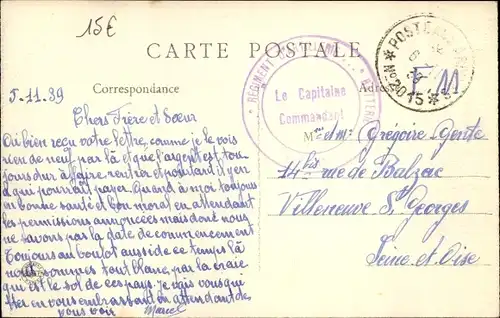 15€
CARTE POSTALE
Correspondance
Adresse
* POSTE AUX ARMÉES *
N° 2015
F M
RÉGIMENT D'ARTILLERIE
BATTERIE
Le Capitaine
Commandant
5-11-39
Chers Frère et Soeur
Oui bien reçu votre lettre, comme je le vois
rien de neuf par là et que l'argent est tou
jours dur à faire rentrer et pourtant il y en
a qui pourrait payer. Quand à moi toujours
en bonne santé et bon moral en attendant
les permissions annoncées mais dont nous
ne savons par la date de commencement
Toujours au boulot aussi de ce temps là
nous sommes tout blanc, par la craie
qui est le sol de ces pays. Je vais vous qui
tter en vous embrassant en attendant de
vous voir
Marcel
Mr et Mme Grégoire Gente
14 bis rue de Balzac
Villeneuve St Georges
Seine et Oise